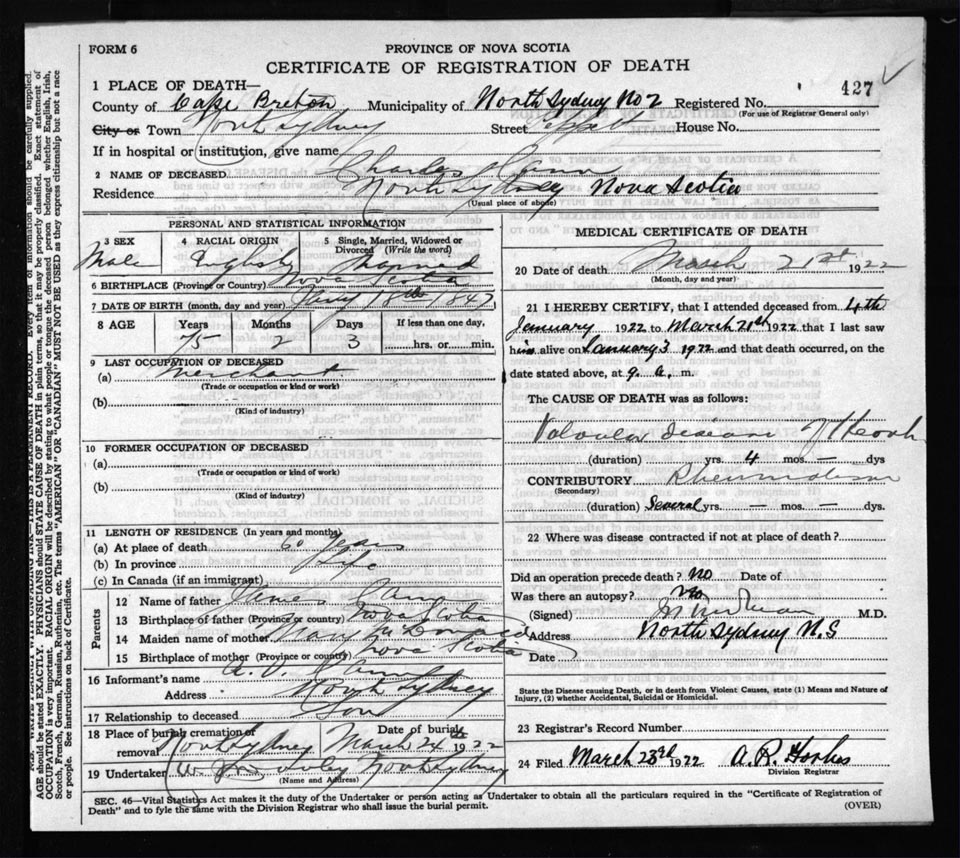 FORM 6
PROVINCE OF NOVA SCOTIA
CERTIFICATE OF REGISTRATION OF DEATH
1 PLACE OF DEATH—
427 ✓
County of Cape Breton Municipality of North Sydney No 2 Registered No.
(For use of Registrar General only)
City or Town North Sydney Street House No.
If in hospital or institution, give name
2 NAME OF DECEASED Charles
Residence North Sydney Nova Scotia
(Usual place of abode)
PERSONAL AND STATISTICAL INFORMATION
3 SEX 4 RACIAL ORIGIN 5 Single, Married, Widowed or Divorced (Write the word)
Male English Married
6 BIRTHPLACE (Province or Country) Nova Scotia
7 DATE OF BIRTH (month, day and year) Jany 18th 1847
8 AGE Years Months Days If less than one day,
75 2 3 hrs. or min.
9 LAST OCCUPATION OF DECEASED
(a) Merchant
(Trade or occupation or kind of work)
(b) —
(Kind of industry)
10 FORMER OCCUPATION OF DECEASED
(a)
(Trade or occupation or kind of work)
(b)
(Kind of industry)
11 LENGTH OF RESIDENCE (In years and months)
(a) At place of death 60 years
(b) In province Life
(c) In Canada (if an immigrant)
Parents
12 Name of father James
13 Birthplace of father (Province or country) Nova Scotia
14 Maiden name of mother Mary McDonald
15 Birthplace of mother (Province or country) Nova Scotia
16 Informant's name A.
Address North Sydney
17 Relationship to deceased Son
18 Place of burial cremation or removal North Sydney Date of burial March 24th 1922
19 Undertaker North Sydney
(Name and Address)
MEDICAL CERTIFICATE OF DEATH
20 Date of death March 21st 1922
(Month, day and year)
21 I HEREBY CERTIFY, that I attended deceased from 4th
January 1922 to March 21st 1922 that I last saw
him alive on January 3 1922 and that death occurred, on the
date stated above, at 9. a. m.
The CAUSE OF DEATH was as follows:
Valvular disease of Heart
(duration) yrs. 4 mos. — dys
CONTRIBUTORY Rheumatism
(Secondary)
(duration) Several yrs. — mos. — dys
22 Where was disease contracted if not at place of death?
Did an operation precede death? No Date of
Was there an autopsy? No
(Signed) M.D.
Address North Sydney N.S
Date
State the Disease causing Death, or in death from Violent Causes, state (1) Means and Nature of
Injury, (2) whether Accidental, Suicidal or Homicidal.
23 Registrar's Record Number
24 Filed March 23rd 1922 A. R. Forbes
Division Registrar
SEC. 46—Vital Statistics Act makes it the duty of the Undertaker or person acting as Undertaker to obtain all the particulars required in the "Certificate of Registration of
Death" and to fyle the same with the Division Registrar who shall issue the burial permit.
(OVER)
N.B. WRITE PLAINLY, WITH UNFADING INK—THIS IS A PERMANENT RECORD. Every item of information should be carefully supplied.
AGE should be stated EXACTLY. PHYSICIANS should STATE CAUSE OF DEATH in plain terms, so that it may be properly classified. Exact statement of
OCCUPATION is very important. RACIAL ORIGIN will be described by stating to what people or tongue the deceased person belonged, whether English, Irish,
Scotch, French, German, Russian, Ruthenian, etc. The terms "AMERICAN" OR "CANADIAN" MUST NOT BE USED as they express citizenship but not a race
or people. See instructions on back of Certificate.